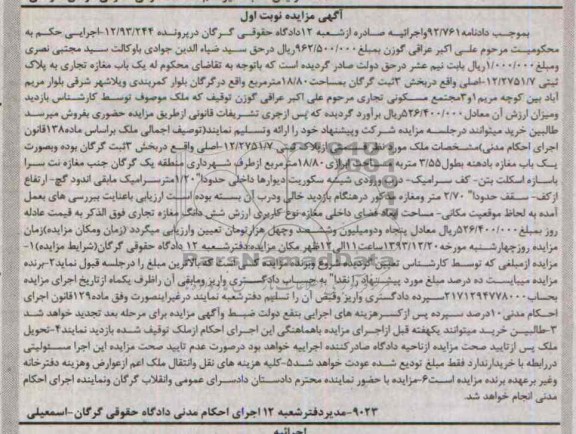 آگهی مزایده نوبت اول
بموجب دادنامه۹۲/۷۶۱واجرائیه صادره ازشعبه ۱۲دادگاه حقوقی گرگان درپرونده ۱۲/۹۳/۲۴۴-اجرایی حکم به
محکومیت مرحوم علی اکبر عراقی گوزن بمبلغ۹۶۲/۵۰۰/۰۰۰ریال درحق سید ضیاء الدین جوادی باوکالت سید مجتبی نصری
ومبلغ۱/۰۰۰/۰۰۰ریال بابت نیم عشر درحق دولت صادر گردیده است که باتوجه به تقاضای محکوم له یک باب مغازه تجاری به پلاک
ثبتی ۱۲/۲۷۵۱/۷-اصلی واقع دربخش ۳ثبت گرگان بمساحت۱۸/۸۰مترمربع واقع درگرگان بلوار کمربندی ویلاشهر شرقی بلوار مریم
آباد بین کوچه مریم۱و۳مجتمع مسکونی تجاری مرحوم علی اکبر عراقی گوزن توقیف که ملک موصوف توسط کارشناس بازدید
ومیزان ارزش آن معادل۵۲۶/۴۰۰/۰۰۰ریال برآورد گردیده که پس ازجری تشریفات قانونی ازطریق مزایده حضوری بفروش میرسد
طالبین خرید میتوانند درجلسه مزایده شرکت وپیشنهاد خود را ارائه وتسلیم نمایند(توصیف اجمالی ملک براساس ماده۱۳۸قانون
اجرای احکام مدنی)مشخصات ملک مورد ازپلاک ثبتی ۱۲/۲۷۵۱/۷-اصلی واقع دربخش ۳ثبت گرگان بوده وبصورت
یک باب مغازه بادهنه بطول۳/۵۵متربه مساحت ابرازی۱۸/۸۰مترمربع ازطرف شهرداری منطقه یک گرگان جنب مغازه نت سرا
باسازه اسکلت بتن- کف سرامیک- درب ورودی شیشه سکوریت- دیوارها داخلی حدودا"۱/۲۰مترسرامیک مابقی اندود گچ- ارتفاع
ازکف- سقف حدودا" ۲/۷۰ متر ومغازه مذکور درهنگام بازدید خالی ودرب آن بسته بوده است ارزیابی باعنایت بررسی های بعمل
آمده به لحاظ موقعیت مکانی- مساحت ابعاد فضای داخلی مغازه-نوع کاربری ارزش شش دانگ مغازه تجاری فوق الذکر به قیمت عادله
روز بمبلغ۵۲۶/۴۰۰/۰۰۰ریال معادل پنجاه ودومیلیون وششصد وچهل هزارتومان تعیین وارزیابی میگردد (زمان ومکان مزایده)زمان
مزایده روزچهارشنبه مورخه۱۳۹۳/۱۲/۲۰ساعت۱۱الی۱۲ظهر مکان مزایده دفترشعبه ۱۲ دادگاه حقوقی گرگان(شرایط مزایده)۱-
مزایده ازمبلغی که توسط کارشناس تعیین گردیده شروع وبرنده کسی است که بالاترین مبلغ را درجلسه قبول نماید۲-برنده
مزایده میبایست ده درصد مبلغ مورد پیشنهاد را نقدا" به حساب دادگستری واریز ومابقی آن راظرف یکماه ازتاریخ اجرای مزایده
بحساب۲۱۷۱۲۹۴۷۷۸۰۰۰سپرده دادگستری واریز وفیش آن را تسلیم دفترشعبه نمایند درغیراینصورت وفق ماده۱۲۹قانون اجرای
احکام مدنی۱۰درصد سپرده پس ازکسرهزینه های اجرایی بنفع دولت ضبط وآگهی مزایده برای مرحله بعد تجدید خواهد شد
۳-طالبین خرید میتوانند یکهفته قبل ازاجرای مزایده باهماهنگی این اجرای احکام ازملک توقیف شده بازدید نمایند۴-تحویل
ملک پس ازتایید صحت مزایده ازناحیه دادگاه صادرکننده اجراییه خواهد بود درصورت عدم تایید صحت مزایده این اجرا مسئولیتی
دررابطه با خریدارندارد فقط مبلغ تودیع شده عودت خواهد شد۵-کلیه هزینه های نقل وانتقال ملک اعم ازعوارض وهزینه دفترخانه
وغیر برعهده برنده مزایده است۶-مزایده با حضور نماینده محترم دادستان دادسرای عمومی وانقلاب گرگان ونماینده اجرای احکام
مدنی انجام خواهد شد.
۹۰۲۳-مدیردفترشعبه ۱۲ اجرای احکام مدنی دادگاه حقوقی گرگان-اسمعیلی